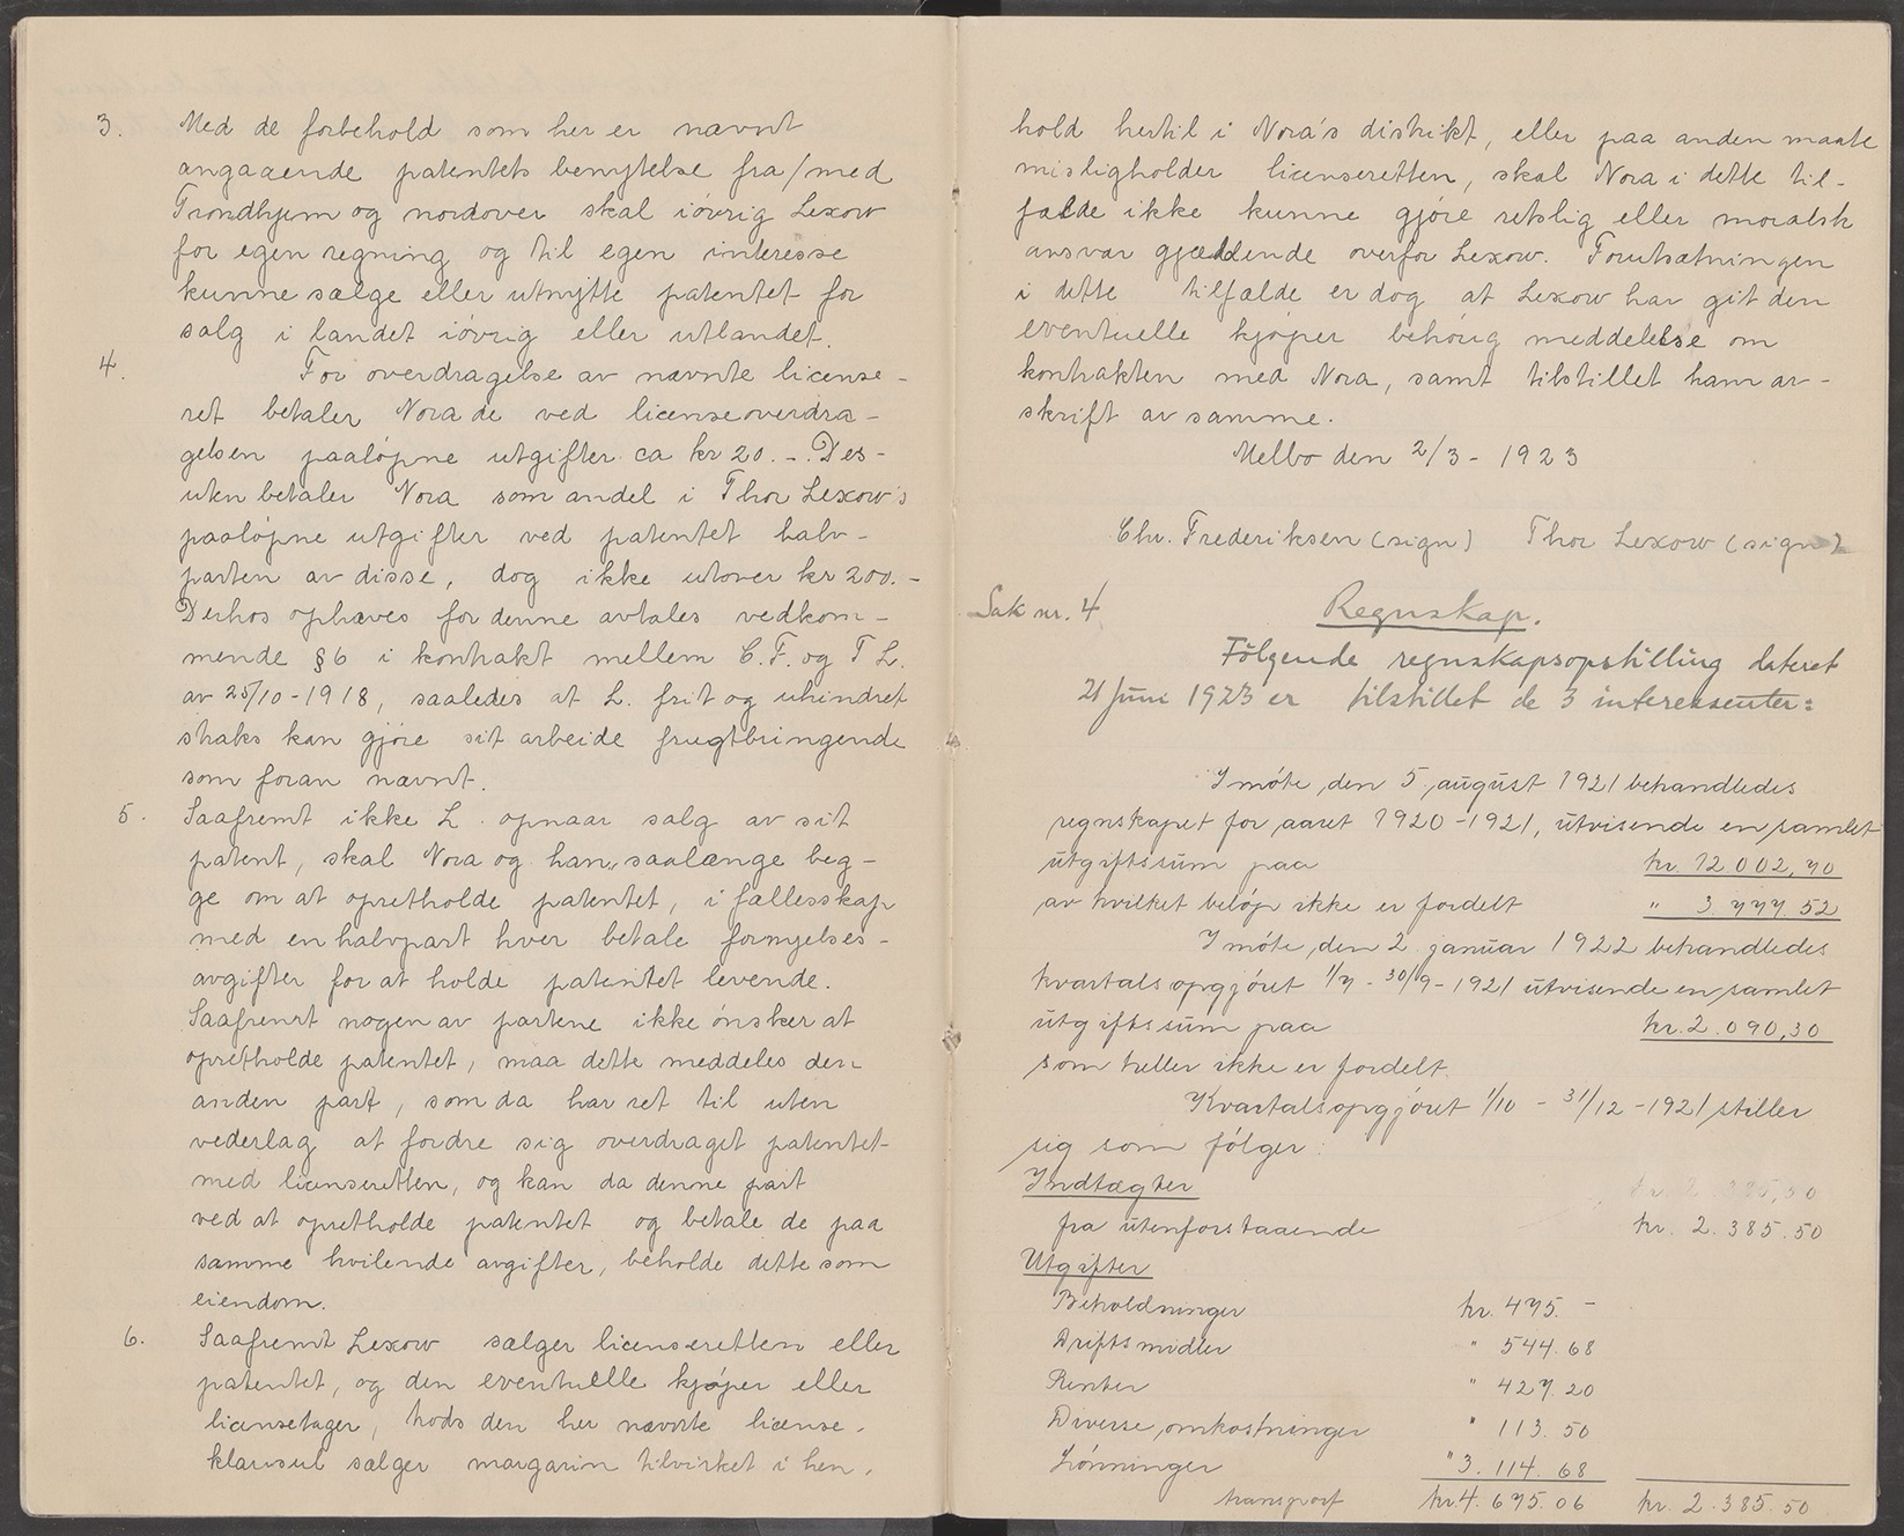 3. Med de forbehold som her er nævnt
angaaende patentets benyttelse fra/med
Trondhjem og nordover skal iøvrig Lexow
for egen regning og til egen interesse
kunne sælge eller utnytte patentet for
salg i landet iøvrig eller utlandet.
4. For overdragelse av nævnte license-
ret betaler Nora de ved licenseoverdra-
gelsen paaløpne utgifter ca kr 20.-. Des-
uten betaler Nora som andel i Thor Lexow's
paaløpne utgifter ved patentet halv-
parten av disse, dog ikke utover kr 200.-
Derhos ophæves for denne avtales vedkom-
mende § 6 i kontrakt mellem C.F. og T L.
av 25/10-1918, saaledes at L. frit og uhindret
straks kan gjøre sit arbeide frugtbringende
som foran nævnt.
5. Saafremt ikke L. opnaar salg av sit
patent, skal Nora og han, saalænge beg-
ge om at opretholde patentet, i fællesskap
med en halvpart hver betale fornyelses-
avgifter for at holde patentet levende.
Saafremt nogen av partene ikke ønsker at
opretholde patentet, maa dette meddeles den
anden part, som da har ret til uten
vederlag at fordre sig overdraget patentet
med licenseretten, og kan da denne part
ved at opretholde patentet og betale de paa
samme hvilende avgifter, beholde dette som
eiendom.
6. Saafremt Lexow sælger licenseretten eller
patentet, og den eventuelle kjøper eller
licensetager, trods den her nævnte license-
klausul sælger margarin tilvirket i hen-
hold hertil i Nora's distrikt, eller paa anden maate
misligholder licenseretten, skal Nora i dette til-
fælde ikke kunne gjøre retslig eller moralsk
ansvar gjældende overfor Lexow. Forutsætningen
i dette tilfælde er dog at Lexow har git den
eventuelle kjøper behørig meddelelse om
kontrakten med Nora, samt tilstillet ham av-
skrift av samme.
Melbo den 2/3 - 1923
Chr. Frederiksen (sign) Thor Lexow (sign)
Sak nr. 4 Regnskap.
Følgende regnskapsopstilling dateret
21 juni 1923 er tilstillet de 3 interessenter:
I møte den 5. august 1921 behandledes
regnskapet for aaret 1920-1921, utvisende en samlet
utgiftssum paa kr. 12 002,70
av hvilket beløp ikke er fordelt " 3.777.52
I møte den 2 januar 1922 behandledes
kvartalsopgjøret 1/7 - 30/9 - 1921 utvisende en samlet
utgiftssum paa kr. 2.090,30
som heller ikke er fordelt.
Kvartalsopgjøret 1/10 - 31/12 - 1921 stiller
sig som følger:
Indtægter
fra utenforstaaende kr. 2.385.50
Utgifter
Beholdninger kr. 475. -
Driftsmidler " 544.68
Renter " 427.20
Diverse omkostninger " 113.50
Lønninger " 3.114.68
transport kr. 4.675.06 kr. 2.385.50